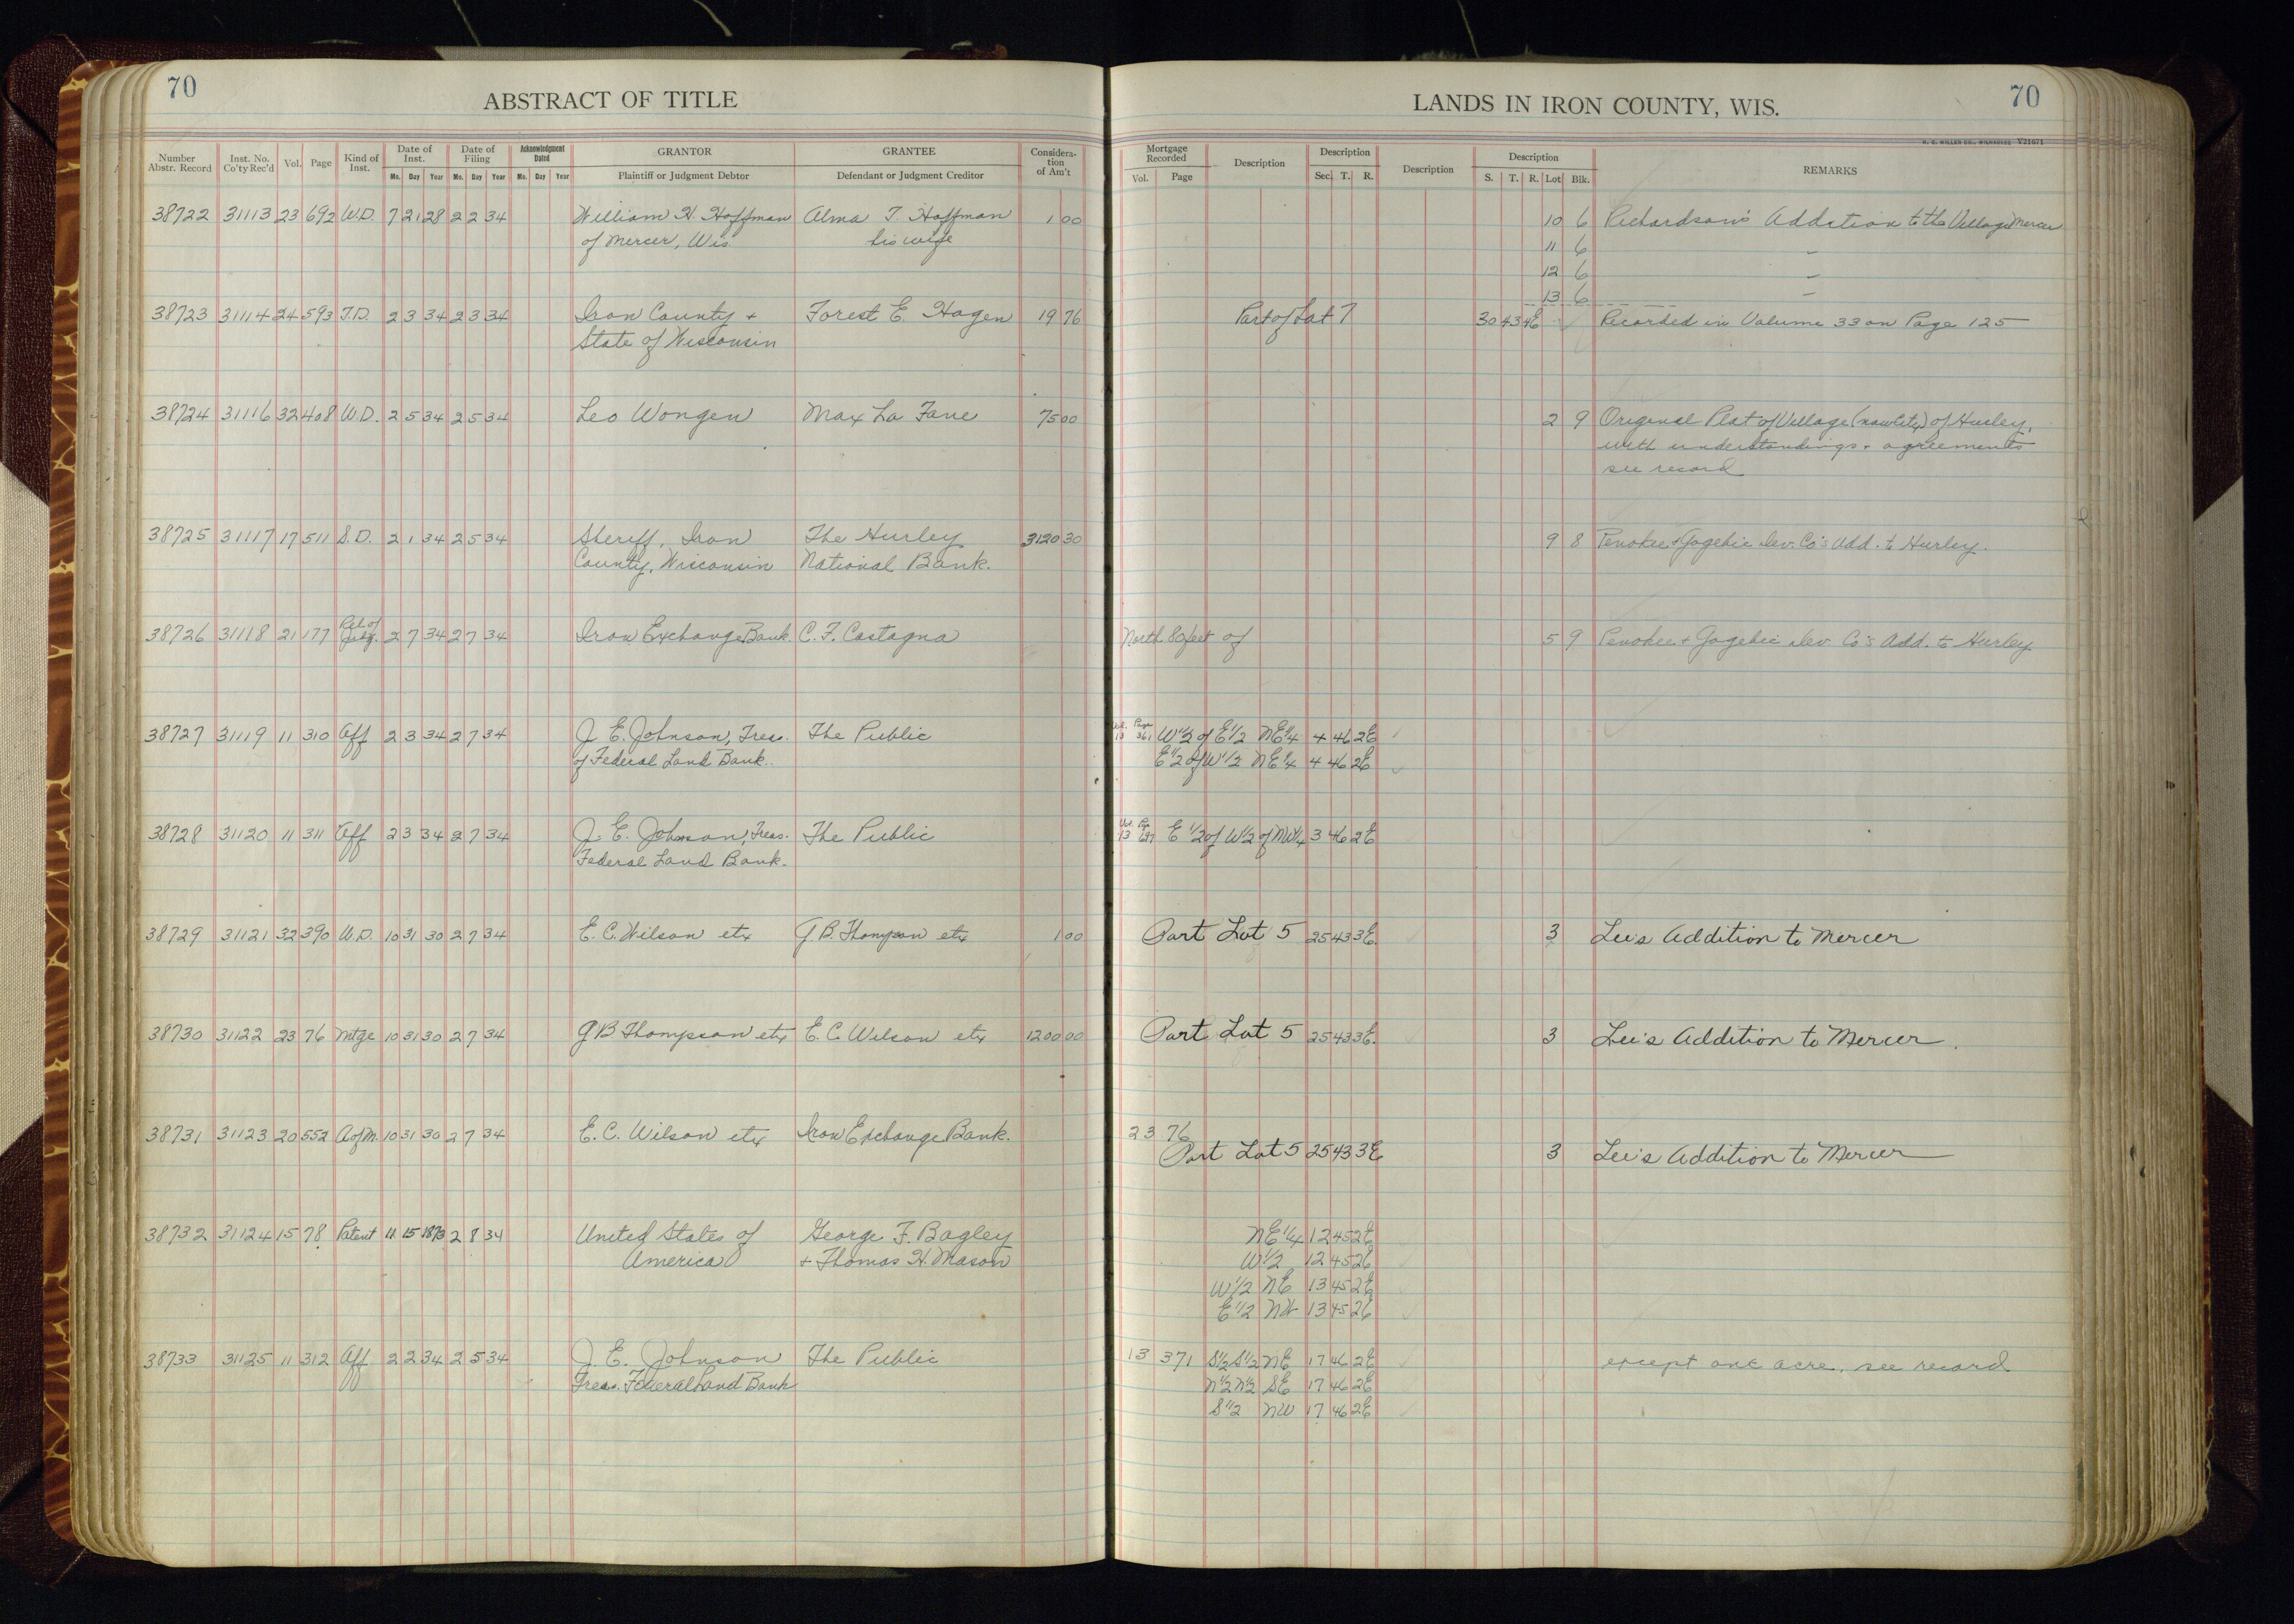 70
ABSTRACT OF TITLE
LANDS IN IRON COUNTY, WIS.
70
H. C. MILLER CO., MILWAUKEE V21671
Number Abstr. Record | Inst. No. Co'ty Rec'd | Vol. | Page | Kind of Inst. | Date of Inst. Mo. Day Year | Date of Filing Mo. Day Year | Acknowledgment Dated Mo. Day Year | GRANTOR Plaintiff or Judgment Debtor | GRANTEE Defendant or Judgment Creditor | Consideration of Am't | Mortgage Recorded Vol. Page | Description | Description Sec. T. R. | Description | Description S. T. R. Lot Blk. | REMARKS
38722 31113 23 692 W.D. 7 21 28 2 2 34 William H. Hoffman Alma T. Hoffman 1 00 10 6 Richardson's Addition to the Village Mercer
of Mercer, Wis. his wife 11 6 "
12 6 "
13 6 "
38723 31114 24 593 T.D. 2 3 34 2 3 34 Iron County + Forest E. Hagen 19 76 Part of Lot 7 30 43 4E Recorded in Volume 33 on Page 125
State of Wisconsin
38724 31116 32 408 W.D. 2 5 34 2 5 34 Leo Wongen Max La Fave 75 00 2 9 Original Plat of Village (now City) of Hurley,
with understandings + agreements
see record
38725 31117 17 511 S.D. 2 1 34 2 5 34 Sheriff, Iron The Hurley 3120 30 9 8 Penokee + Gogebic Dev. Co's Add. to Hurley.
County, Wisconsin National Bank.
38726 31118 21 177 Rel of Judg. 2 7 34 2 7 34 Iron Exchange Bank. C. F. Castagna North 80 feet of 5 9 Penokee + Gogebic Dev. Co's Add. to Hurley
38727 31119 11 310 Aff 2 3 34 2 7 34 J. E. Johnson, Treas. The Public Vol. 13 Page 361 W 1/2 of E 1/2 NE 1/4 4 46 2E
of Federal Land Bank. E 1/2 of W 1/2 NE 1/4 4 46 2E
38728 31120 11 311 Aff 2 3 34 2 7 34 J. E. Johnson, Treas. The Public Vol. 13 Pge E 1/2 of W 1/2 of NW 1/4 3 46 2E
Federal Land Bank.
38729 31121 32 390 W.D. 10 31 30 2 7 34 E. C. Wilson etx G. B. Thompson etx 1 00 Part Lot 5 25 43 3E 3 Lee's Addition to Mercer
38730 31122 23 76 Mtge 10 31 30 2 7 34 G B Thompson etx E. C. Wilson etx 1200 00 Part Lot 5 25 43 3E. 3 Lee's Addition to Mercer.
38731 31123 20 552 A of M. 10 31 30 2 7 34 E. C. Wilson etx Iron Exchange Bank. 23 76
Part Lot 5 25 43 3E 3 Lee's Addition to Mercer
38732 31124 15 78 Patent 11 15 1873 2 8 34 United States of George F. Bagley NE 1/4 12 45 2E
America + Thomas H. Mason W 1/2 12 45 2E
W 1/2 NE 13 45 2E
E 1/2 NW 13 45 2E
38733 31125 11 312 Aff 2 2 34 2 5 34 J. E. Johnson The Public 13 371 S 1/2 S 1/2 NE 17 46 2E except one acre, see record
Treas. Federal Land Bank N 1/2 N 1/2 SE 17 46 2E
S 1/2 NW 17 46 2E